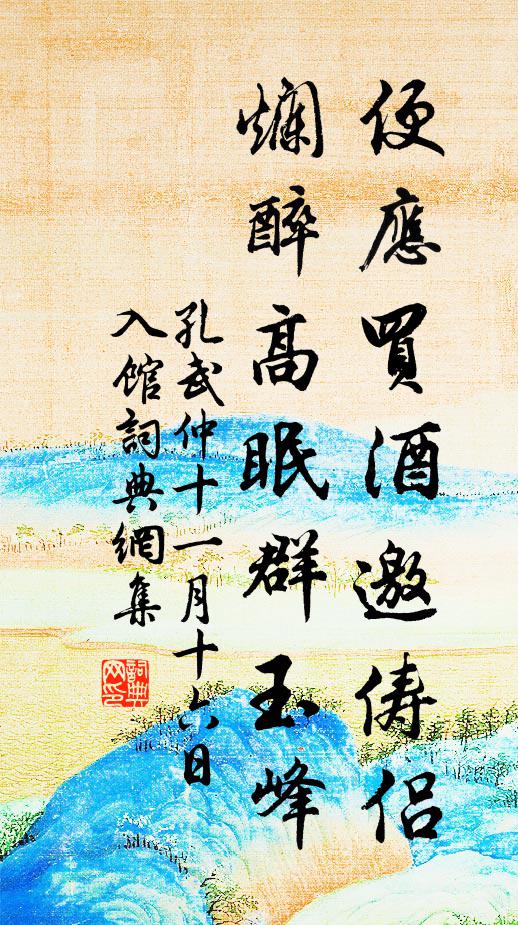 便應買酒邀儔侶
爛醉高眠群玉峰
孔武仲十一月十六日
入館詞典網集
詞典
网印